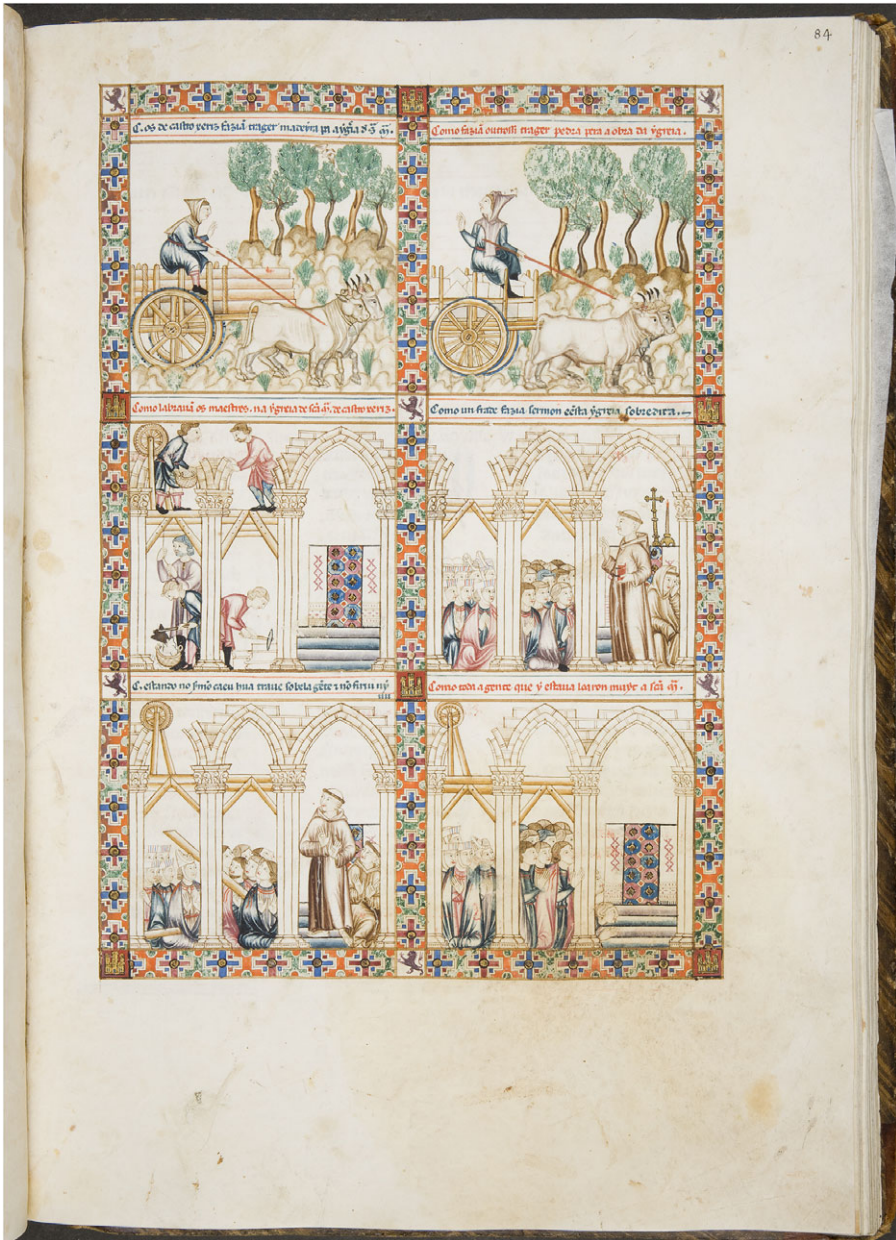 84
C. os de castro xeriz faziã trager madeyra pa aygr̃ia d s̃ m̃.
Como faziã outrossi trager pedra pera a obra da ygreia.
Como labrauã os maestres. na ygreia de sc̃a m̃. de castro xeriz.
Como un frade fazia sermon ẽesta ygreia sobredita.
C. estando no s̃mõ caeu hũa traue sobela gẽte ⁊ nõ firiu nỹ
Como toda a gente que y estaua loaron muyto a sc̃a m̃.